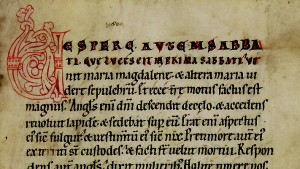 VESPERE AVTEM SABBA
TI. QVE LVCESCIT IN PRIMA SABBATI. Ve
nit maria magdalene & altera maria vi
dere sepulchrū. & ecce terre motus factus est
magnus. Angl's enī dnī descendit de celo. & accedens
reuoluit lapidē & sedebat sup eū. Erat enī aspectus
ei' sic fulgur. & uestimtū ei' sic nix. Pre timore autē ei'
exterriti st custodes. & facti st uelut mortui. Respon
dens autē angl's dixit mulierib'. Nolite timere uos.